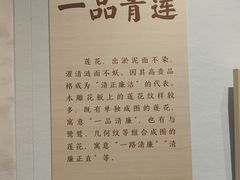 一品青莲
莲花，出淤泥而不染，
濯清涟而不妖。因其高贵品
格成为“清正廉洁”的代表。
木雕花板上的莲花纹样较
多，既有单独成图的莲花，
寓意“一品清廉”，也有与
鹭鸶、几何纹等组合成图的
莲花，寓意“一路清廉”“清
廉正直”等。